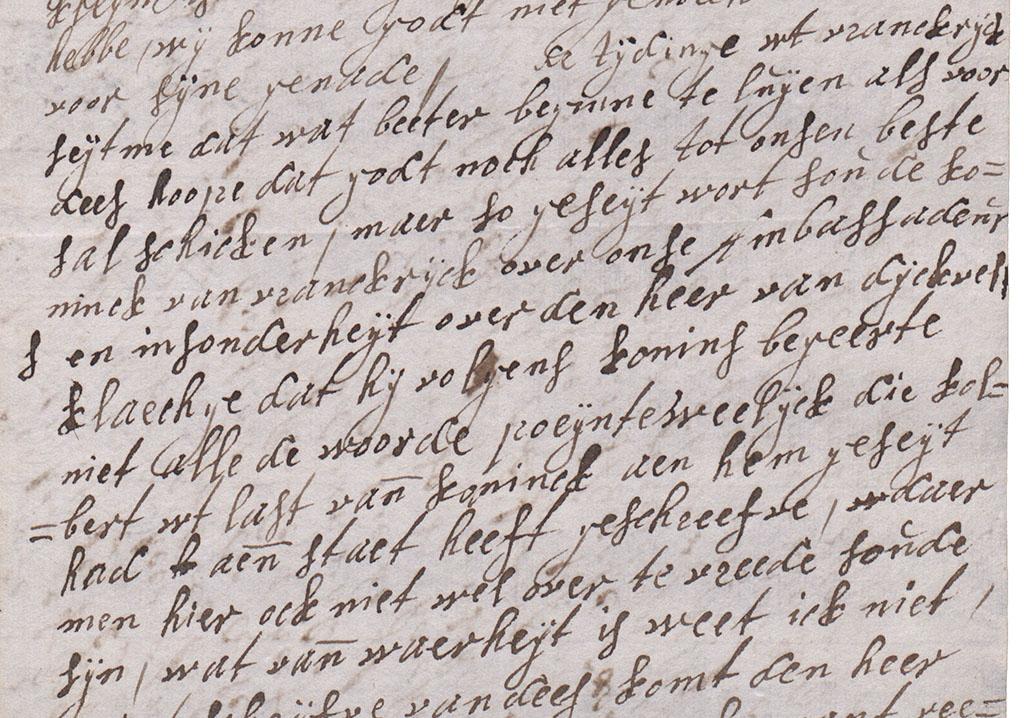 hebbe, wij konne godt niet genoch
voor sijne genade / de tijdinge wt vranckrijck
seijtme dat wat beeter beginne te luijen als voor
dees hoope dat godt noch alles tot onsen beste
sal schicken, maer so geseijt wort soude ko=
ninck van vranckrijck over onse Ambassadeur
s en insonderheijt over den heer van dijckvelt
klaechge dat hij volgens konins begeerte
niet alle de woorde poeijnteweelijck die kol=
=bert wt last vañ koninck aen hem geseijt
had aeñ staet heeft geschreefve, waer
men hier ock niet wel over te vreede soude
sijn, wat vañ waerheijt is weet ick niet,
van dees komt den heer